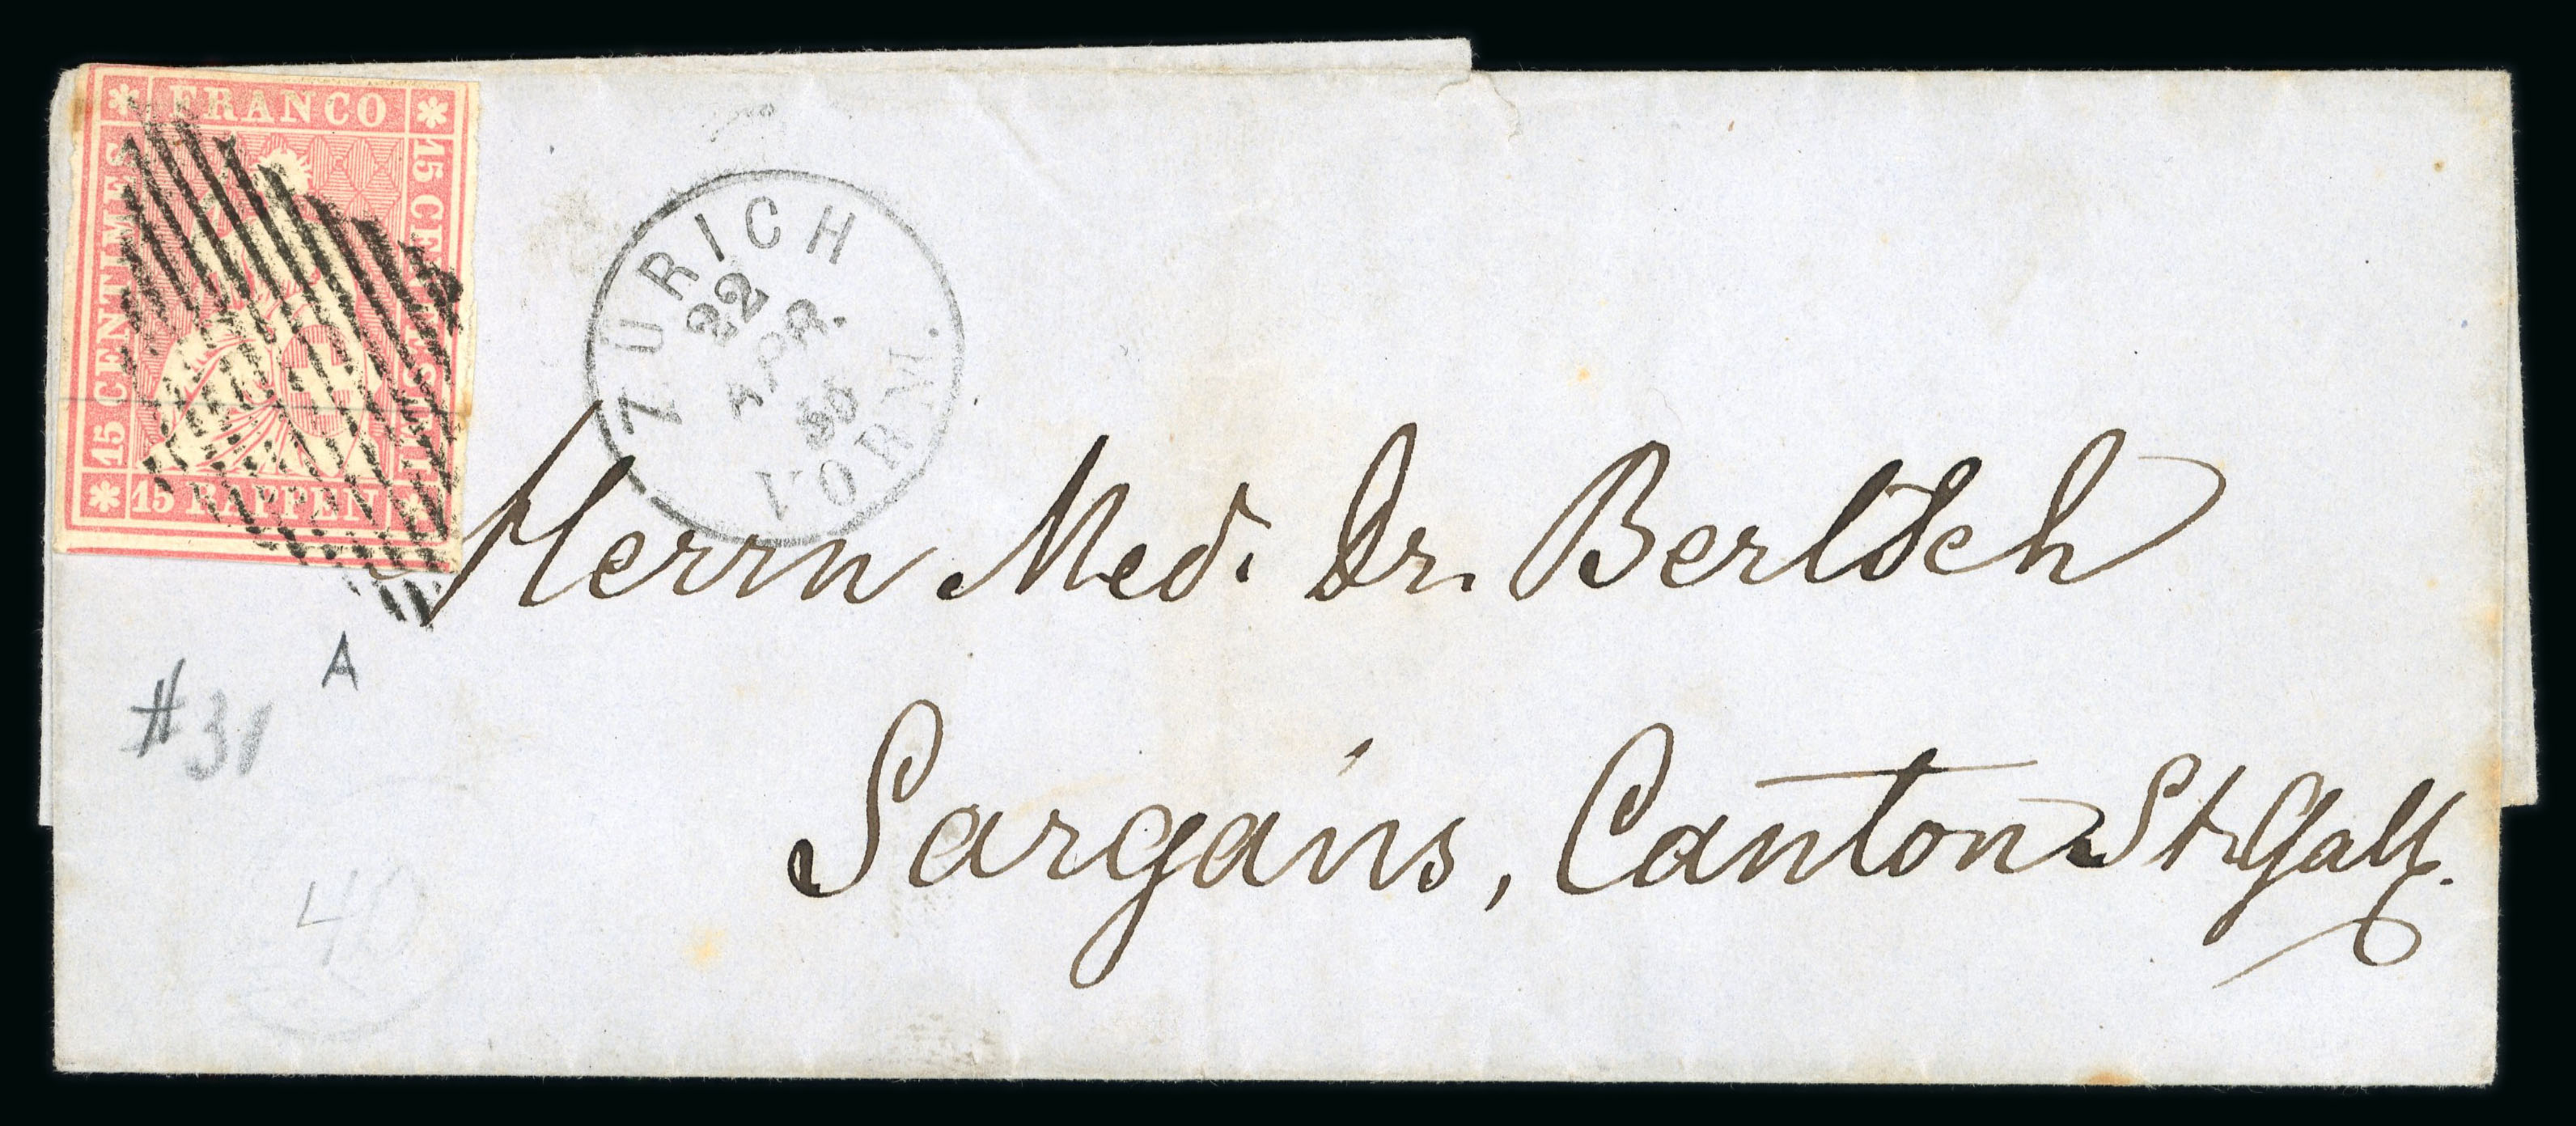 FRANCO
15 CENTIMES
15 CENTESIMI
15 RAPPEN
ZÜRICH
22
APR.
VORM.
Herrn Med. Dr. Bertsch
Sargans, Canton St. Gall.
A
#31
40